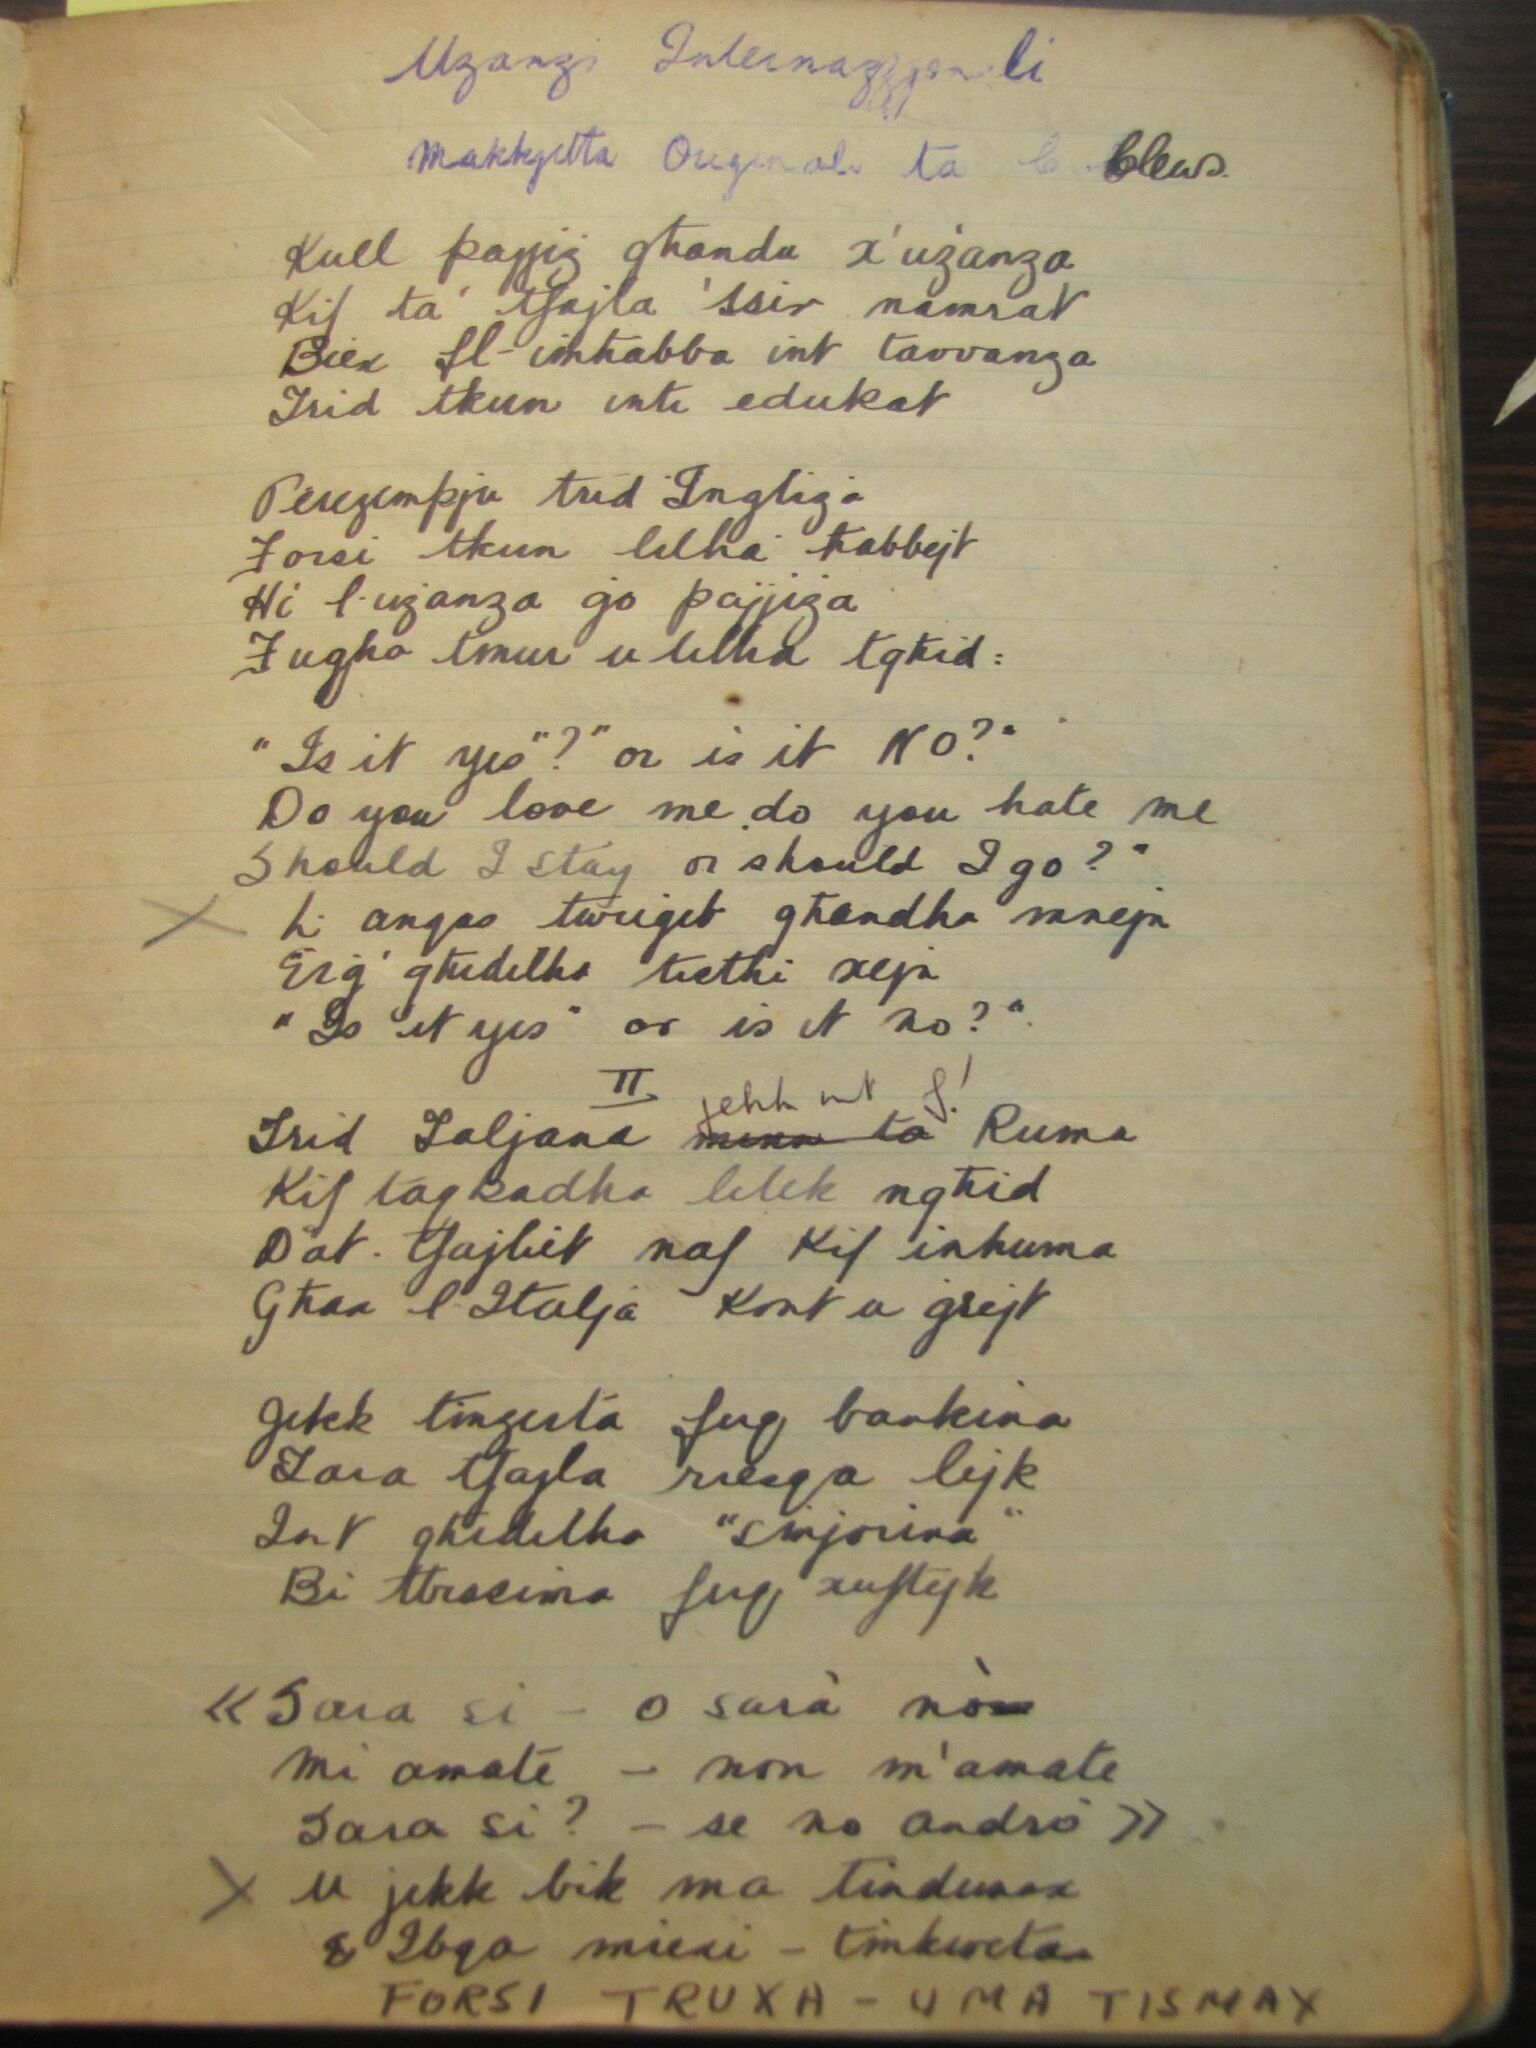 Użanzi Internazzjonali
Makkjetta Originali ta Blews.
Kull pajjiż għandu x'użanza
Kif ta' tfajla 'ssir namrat
Biex fl-imħabba int tavvanza
Irid tkun inti edukat
Perezempju trid Ingliża
Forsi tkun lilha ħabbejt
Hi l-użanza ġo pajjiża
Fugha tmur u lilha tgħid:
"Is it yes"?" or is it NO?"
Do you love me do you hate me
Should I stay or should I go?"
Li angas turiget għandha mnejn
Erġ' għedilha tistħi xejn
"Is it yes" or is it no?"
II
jekk int f'!
Trid Taljana minn ta' Ruma
Kif tagħadha lilek ngħid
Dat-tfajliet naf kif inhuma
Għax l-Italja kont u ġrejt
Jekk tinzerta fuq bankina
Tara tfajla riesqa lejk
Int għedilha "sinjorina"
Bi tbissima fuq xuftejk
«Sara si - o sarà nò
Mi amate - non m'amate
Sara si? - se no andrò»
U jekk bik ma tindunax
Ibqa miexi - tinkwetax
FORSI TRUXA - U MA TISMAX